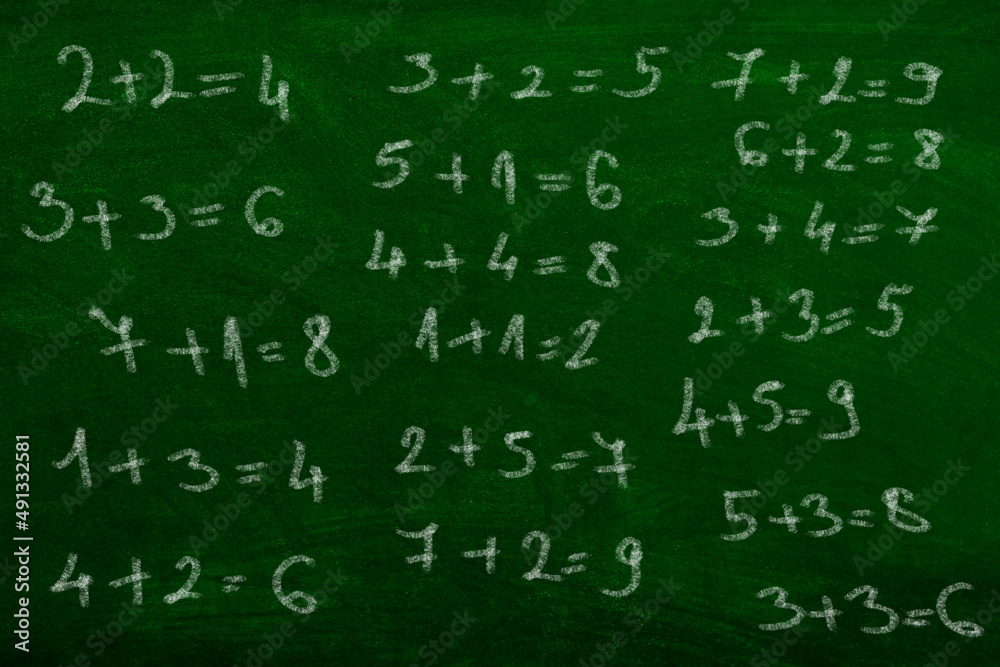 2+2=4
3+3=6
7+1=8
1+3=4
4+2=6
3+2=5
5+1=6
4+4=8
1+1=2
2+5=7
7+2=9
7+2=9
6+2=8
3+4=7
2+3=5
4+5=9
5+3=8
3+3=6
Adobe Stock | #491332581